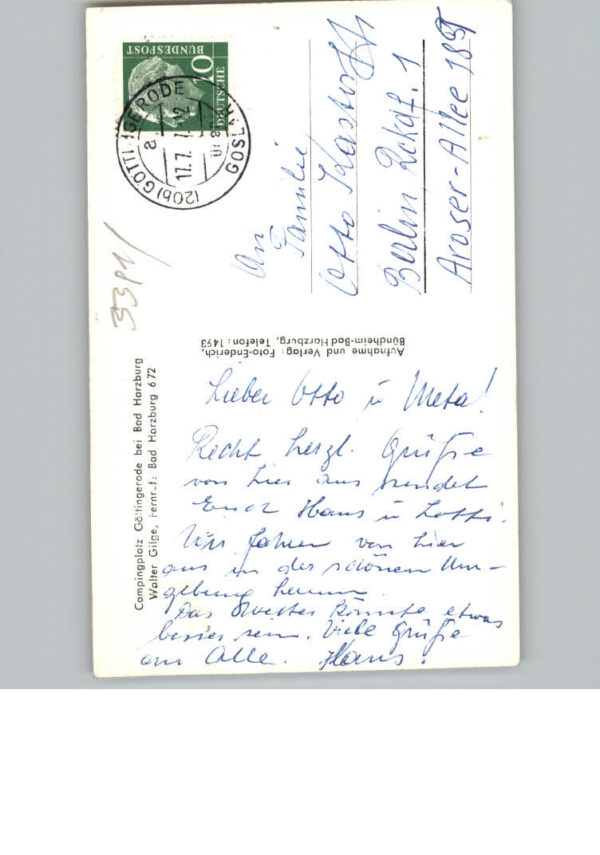 Campingplatz Göttingerode bei Bad Harzburg
Walter Gilge, Fernruf: Bad Harzburg 672
Aufnahme und Verlag: Foto-Enderich,
Bündheim-Bad Harzburg, Telefon: 1493
DEUTSCHE
BUNDESPOST
10
(20b) GÖTTINGERODE
GOSLAR
a
17.7.
3391/
An
Familie
Otto
Berlin Rckdf. 1
Aroser-Allee 189
Lieber Otto u Meta!
Recht herzl. Grüße
von hier aus sendet
Euch Hans u Lotti.
Wir fahren von hier
aus in der schönen Um-
gebung herum.
Das Wetter könnte etwas
besser sein. Viele Grüße
an Alle. Hans!